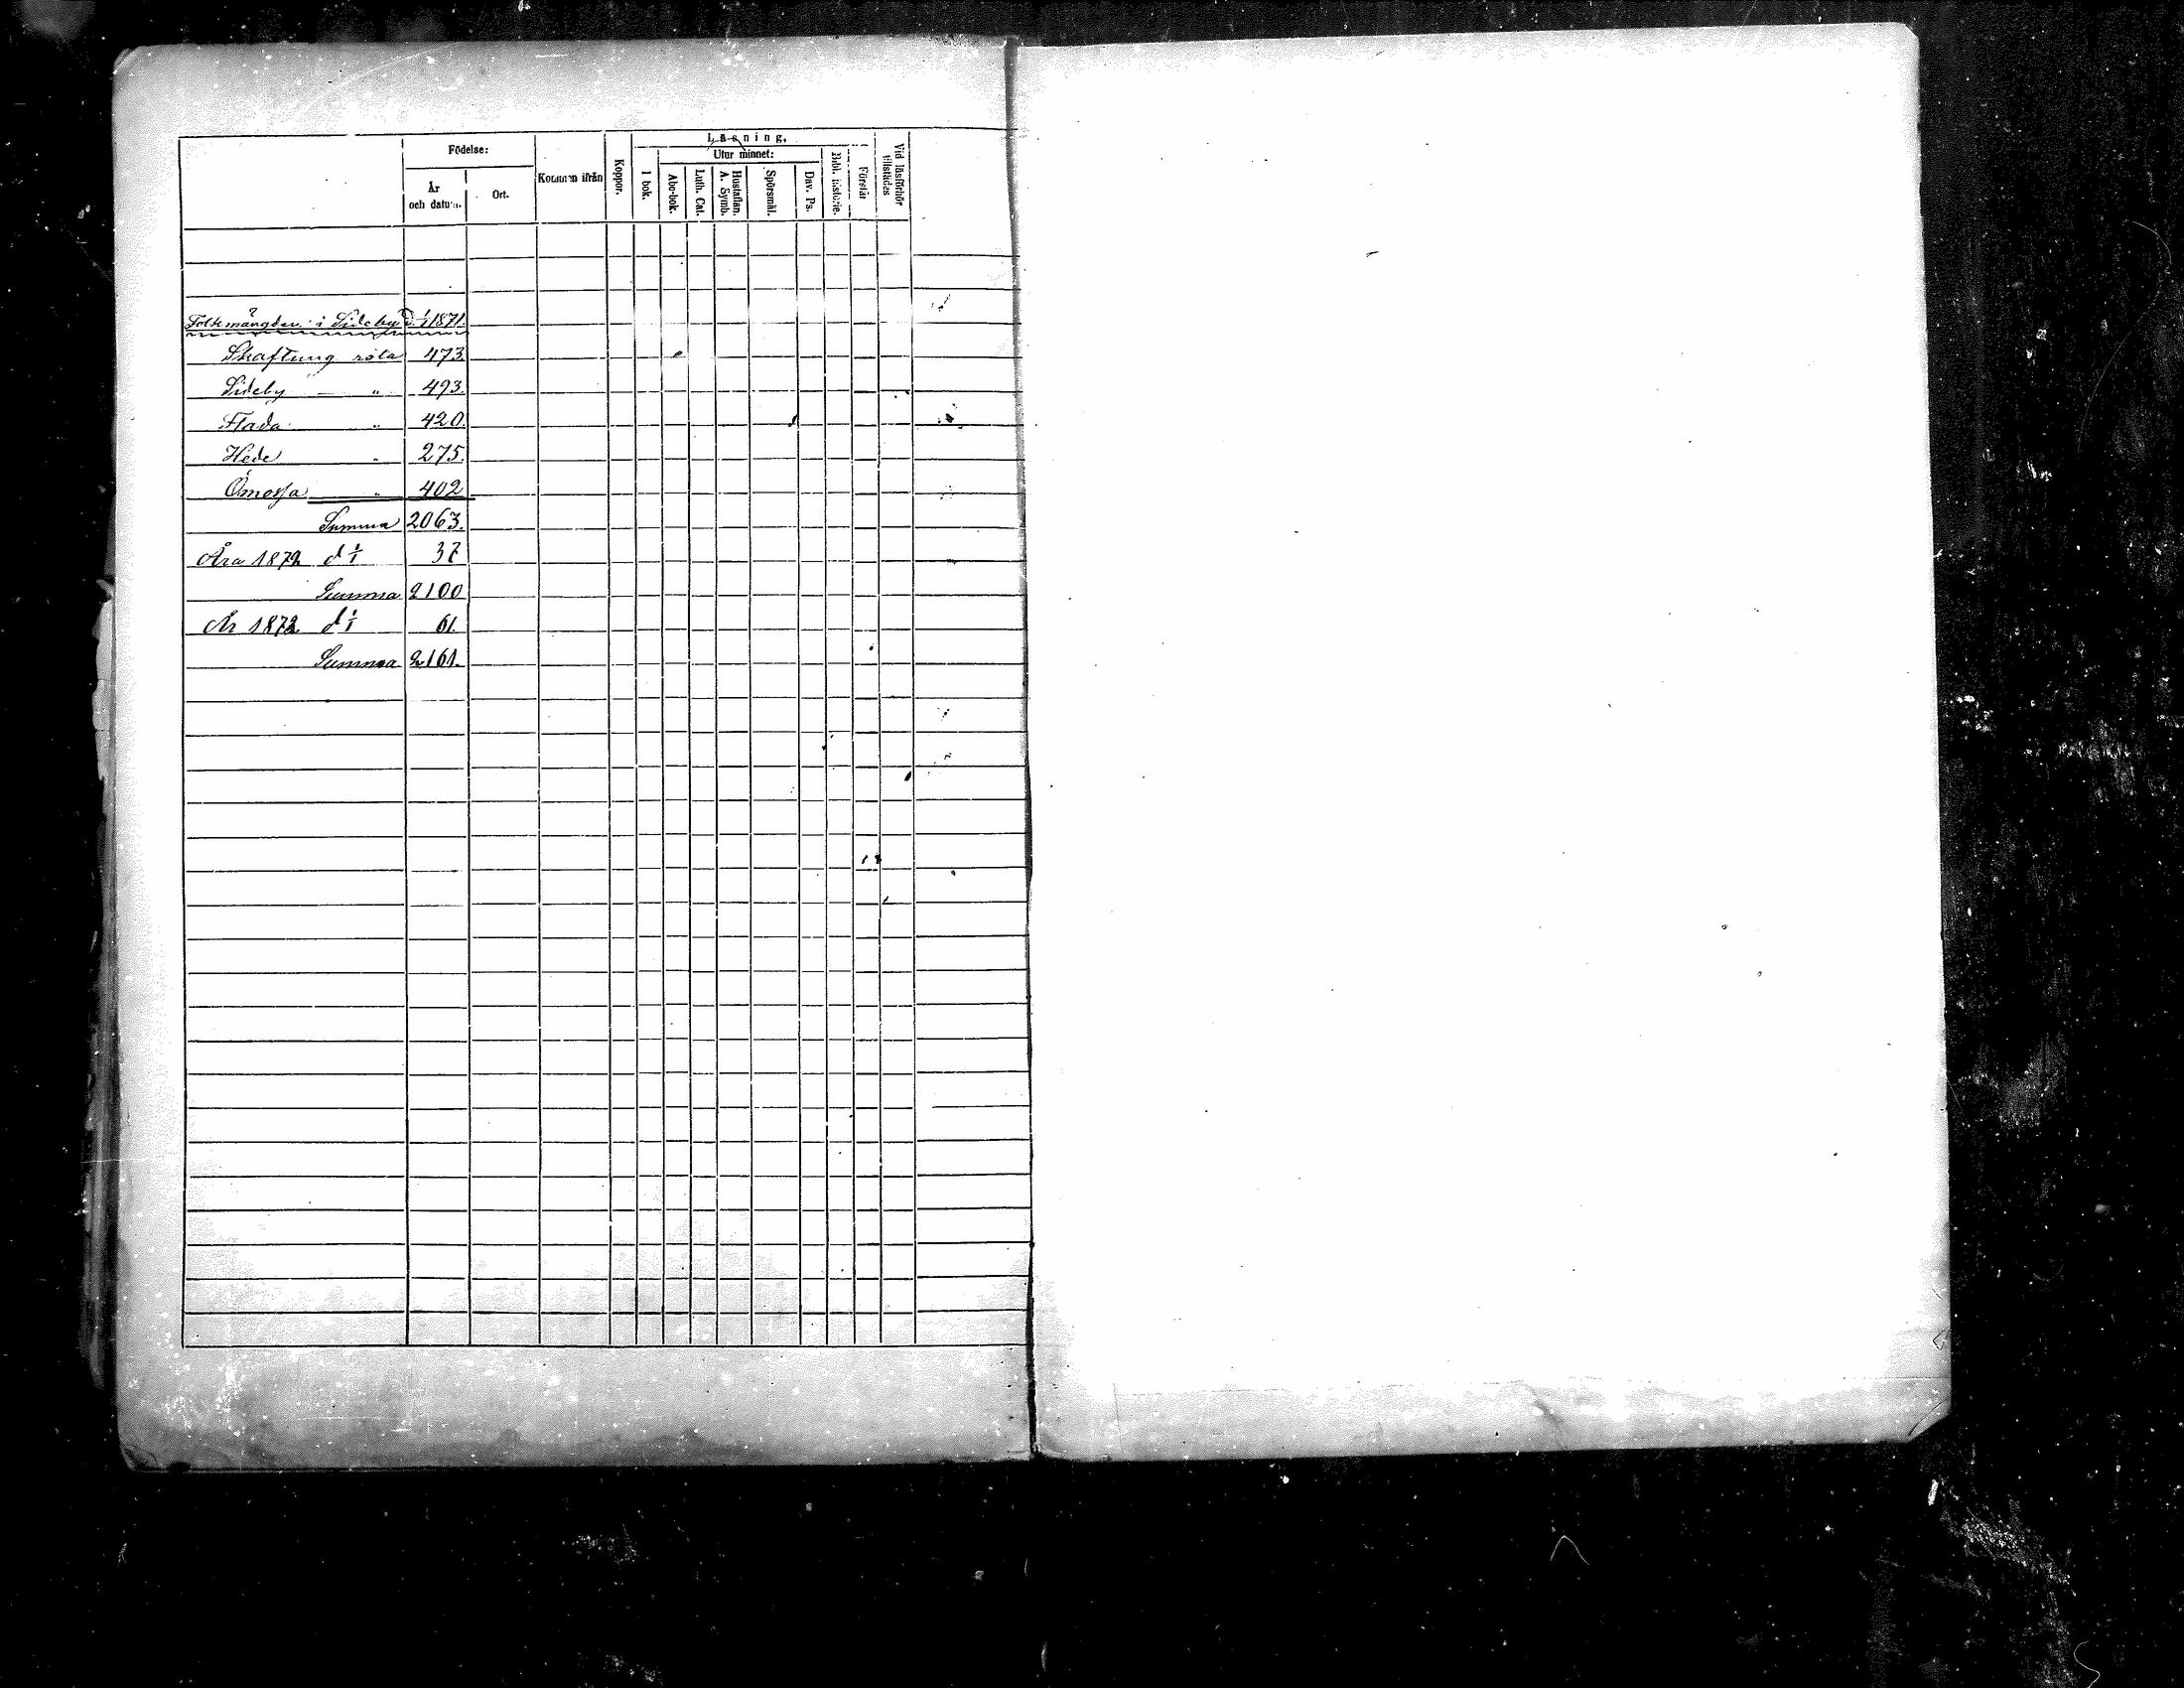 Läsning,
Födelse:
Utur minnet:
År och datum.
Ort.
Kommen ifrån
Koppor.
I bok.
Abc-bok.
Luth. Cat.
Hustaflan. A. Symb.
Spörsmål.
Dav. Ps.
Bibl. historie.
Förstår
Vid läsförhör tillstädes
Folkmängden i Sideby d. 1/1 1871.
Skaftung rota 473
Sideby " 493.
Flada " 420.
Hede " 275.
Ömossa " 402
Summa 2063.
Åra 1872 d 1/1 37
Summa 2100
År 1873 d 1/1 61.
Summa 2161.